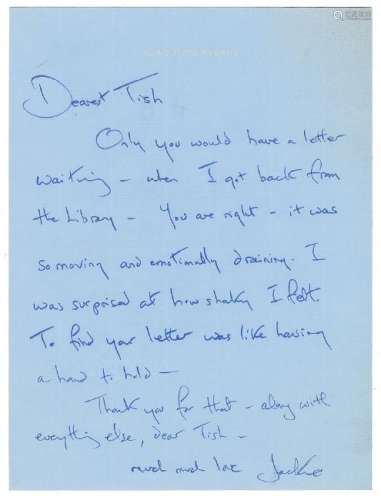 Dearest Tish
Only you would have a letter
waiting – when I got back from
the Library – You are right – it was
so moving and emotionally draining. I
was surprised at how shaky I felt.
To find your letter was like having
a hand to hold –
Thank you for that – along with
everything else, dear Tish –
much much love Jackie